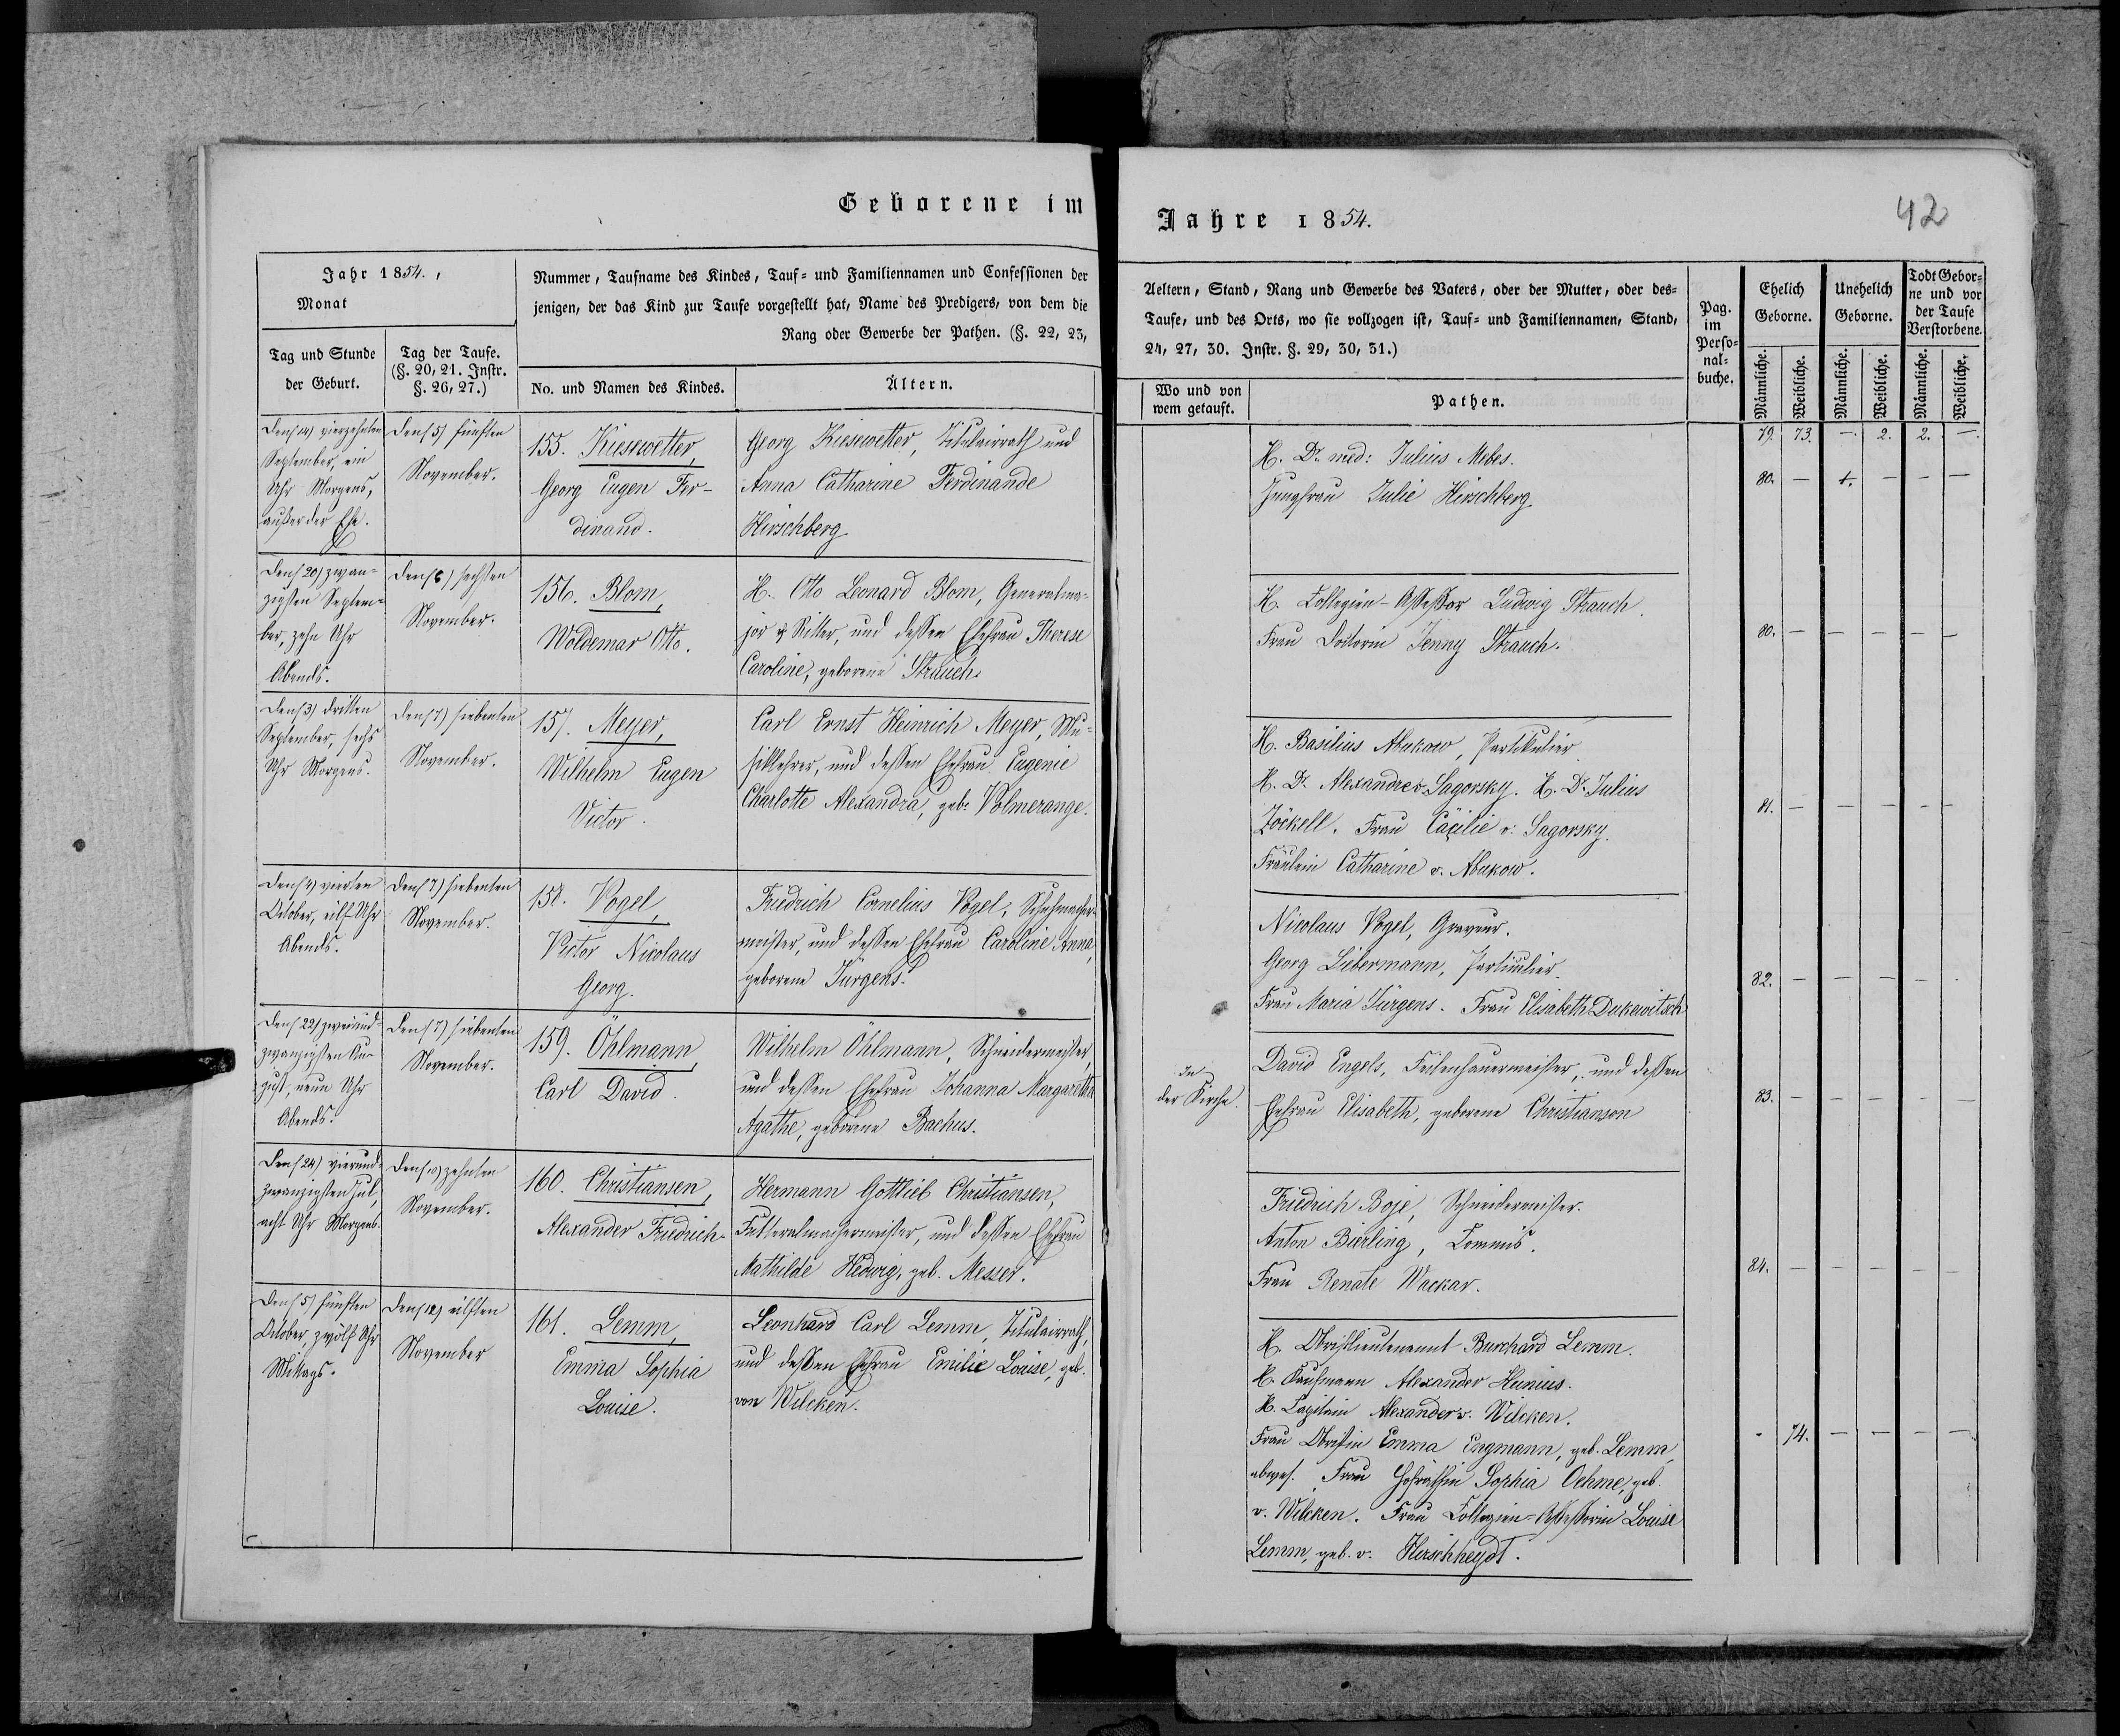 Geborene im
Jahr 1854.,
Monat
Nummer, Taufname des Kindes, Tauf- und Familiennamen und Confessionen der
jenigen, der das Kind zur Taufe vorgestellt hat, Name des Predigers, von dem die
Rang oder Gewerbe der Pathen. (§. 22, 23,
Tag und Stunde
der Geburt.
Tag der Taufe.
(§. 20, 21. Instr.
§. 26, 27.)
No. und Namen des Kindes.
Ältern.
Den (14) vierzehnten
September, ein
Uhr Morgens,
außer der Ehe.
Den (5) fünften
November.
155. Kiesewetter,
Georg Eugen Fer-
dinand.
Georg Kiesewetter, Titulairrath und
Anna Catharine Ferdinande
Hirschberg
Den (20) zwan-
zigsten Septem-
ber, zehn Uhr
Abends.
Den (6) sechsten
November.
156. Blom,
Woldemar Otto.
H. Otto Leonard Blom, Generalma-
jor & Ritter, und dessen Ehefrau Therese
Caroline, geborene Strauch.
Den (3) dritten
September, sechs
Uhr Morgens.
Den (7) siebenten
November.
157. Meyer,
Wilhelm Eugen
Victor.
Carl Ernst Heinrich Meyer, Mu-
siklehrer, und dessen Ehefrau Eugenie
Charlotte Alexandra, geb. Volmerange.
Den (4) vierten
October, eilf Uhr
Abends.
Den (7) siebenten
November.
158. Vogel,
Victor Nicolaus
Georg.
Friedrich Cornelius Vogel, Schuhmacher-
meister, und dessen Ehefrau Caroline Anna,
geborene Jürgens.
Den (22) zweiund-
zwanzigsten Au-
gust, neun Uhr
Abends.
Den (7) siebenten
November.
159. Öhlmann,
Carl David.
Wilhelm Öhlmann, Schneidermeister,
und dessen Ehefrau Johanna Margaretha
Agathe, geborene Bachus.
Den (24) vierund-
zwanzigsten Jul,
acht Uhr Morgens.
Den (10) zehnten
November.
160. Christiansen,
Alexander Friedrich.
Hermann Gottlieb Christiansen,
Futteralmachermeister, und dessen Ehefrau
Mathilde Hedwig, geb. Messer.
Den (5) fünften
October, zwölf Uhr
Mittags.
eilften
November
161. Lemm,
Emma Sophia
Louise.
Leonhard Carl Lemm, Titulairrath,
und dessen Ehefrau Emilie Louise, geb.
von Wilcken.
Jahre 1854.
42
Aeltern, Stand, Rang und Gewerbe des Vaters, oder der Mutter, oder des-
Taufe, und des Orts, wo sie vollzogen ist, Tauf- und Familiennamen, Stand,
24, 27, 30. Instr. §. 29, 30, 31.)
Wo und von
wem getauft.
Pathen.
Pag.
im
Perso-
nal-
buche.
Ehelich
Geborne.
Unehelich
Geborne.
Todt Gebor-
ne und vor
der Taufe
Verstorbene.
Männliche.
Weibliche.
Männliche.
Weibliche.
Männliche.
Weibliche.
79. 73. — 2. 2. —
H. Dr. med: Julius Mebes.
Jungfrau Julie Hirschberg
80. — — — —
H. Collegien-Assessor Ludwig Strauch.
Frau Doctorin Jenny Strauch.
80. — — — — —
H. Basilius Abakow, Partikulier
H. Dr. Alexander Sagorsky. H. Dr. Julius
Zöckell. Frau Cäcilie v. Sagorsky.
Fräulein Catharine v. Abakow.
81. — — — — —
Nicolaus Vogel, Graveur.
Georg Liebermann, Particulier.
Frau Maria Jürgens. Frau Elisabeth Dukewitsch
82. — — — — —
In
der Kirche.
David Engels, Feilenhauermeister, und dessen
Ehefrau Elisabeth, geborene Christianson
83. — — — — —
Friedrich Boje, Schneidermeister.
Anton Bierling, Commis.
Frau Renate Wackar.
84. — — — — —
H. Obristlieutenannt Burchard Lemm.
H. Kaufmann Alexander Hunius.
H. Capitain Alexander v. Wilcken.
Frau Obristin Emma Engmann, geb. Lemm,
abwes. Frau Hofräthin Sophia Oehme, geb.
v. Wilcken. Frau Collegien-Assessorin Louise
Lemm, geb. v. Hirschheydt.
- 74. — — — —